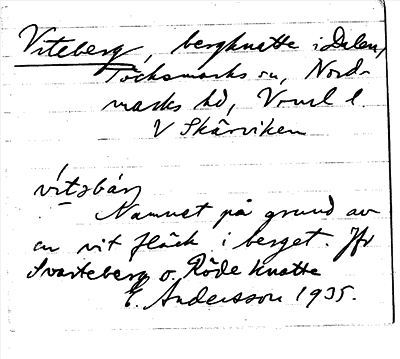 Viteberg, bergknatte i Dalen,
Töcksmarks sn, Nord-
marks hd, Vrml l.
V Skärviken
vi̍tәbárj
Namnet på grund av
en vit fläck i berget. Jfr
Svarteberg o. Röde Knatte
E. Andersson 1935.